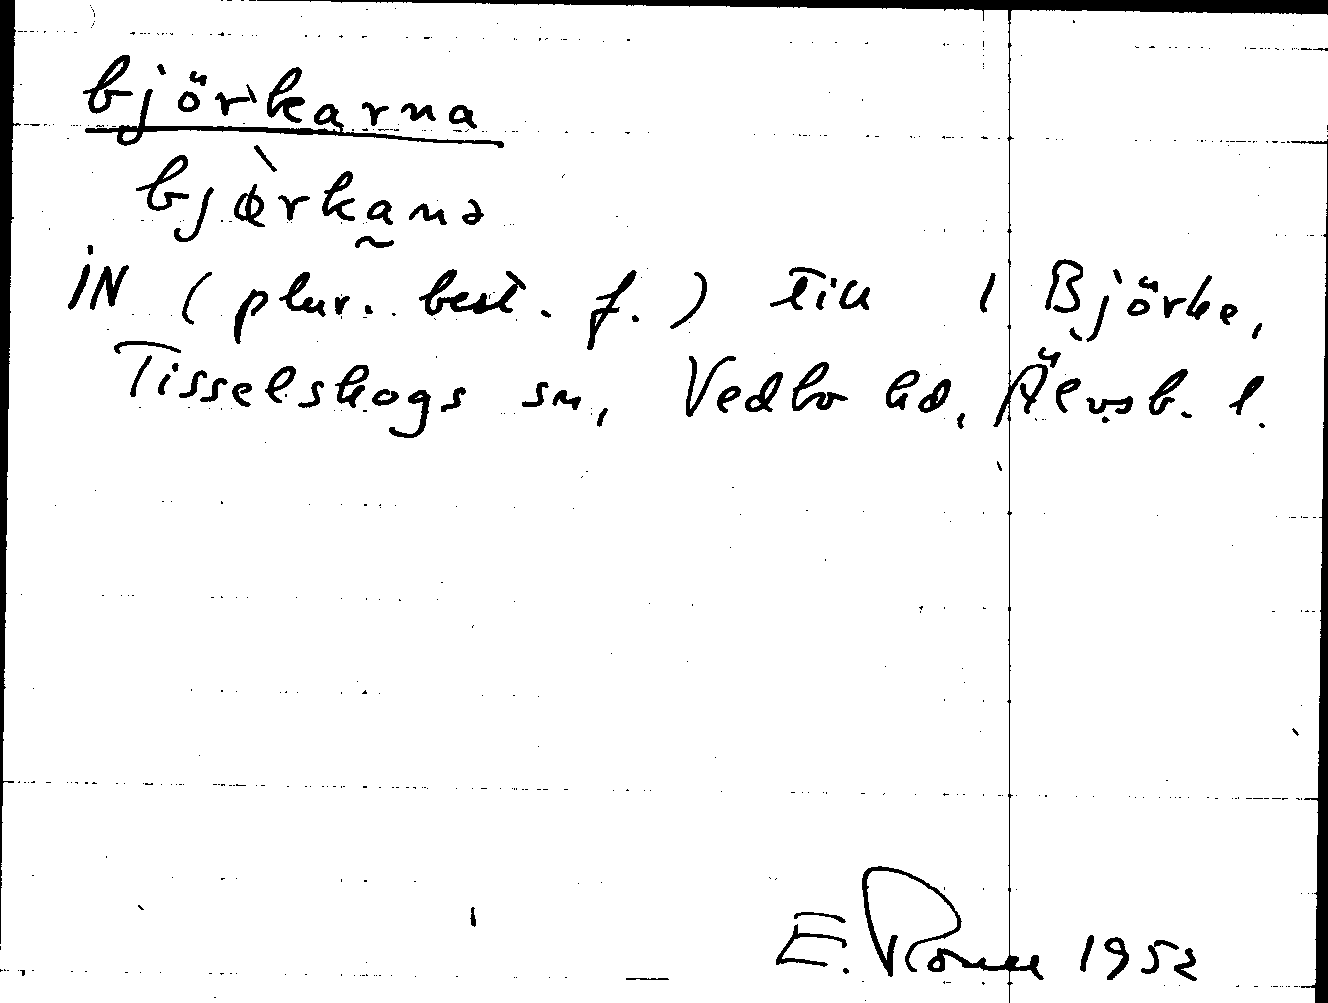 björkarna
bjø̀rka̰nə
iN (plur. best. f.) till 1 Björke,
Tisselskogs sn, Vedbo hd, Älvsb. l.
E. 1952